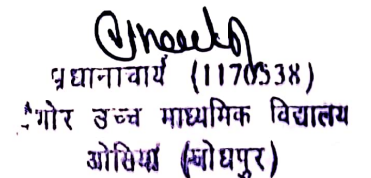 प्रधानाचार्य (1170538)
उच्च माध्यमिक विद्यालय
ओसियां (जोधपुर)